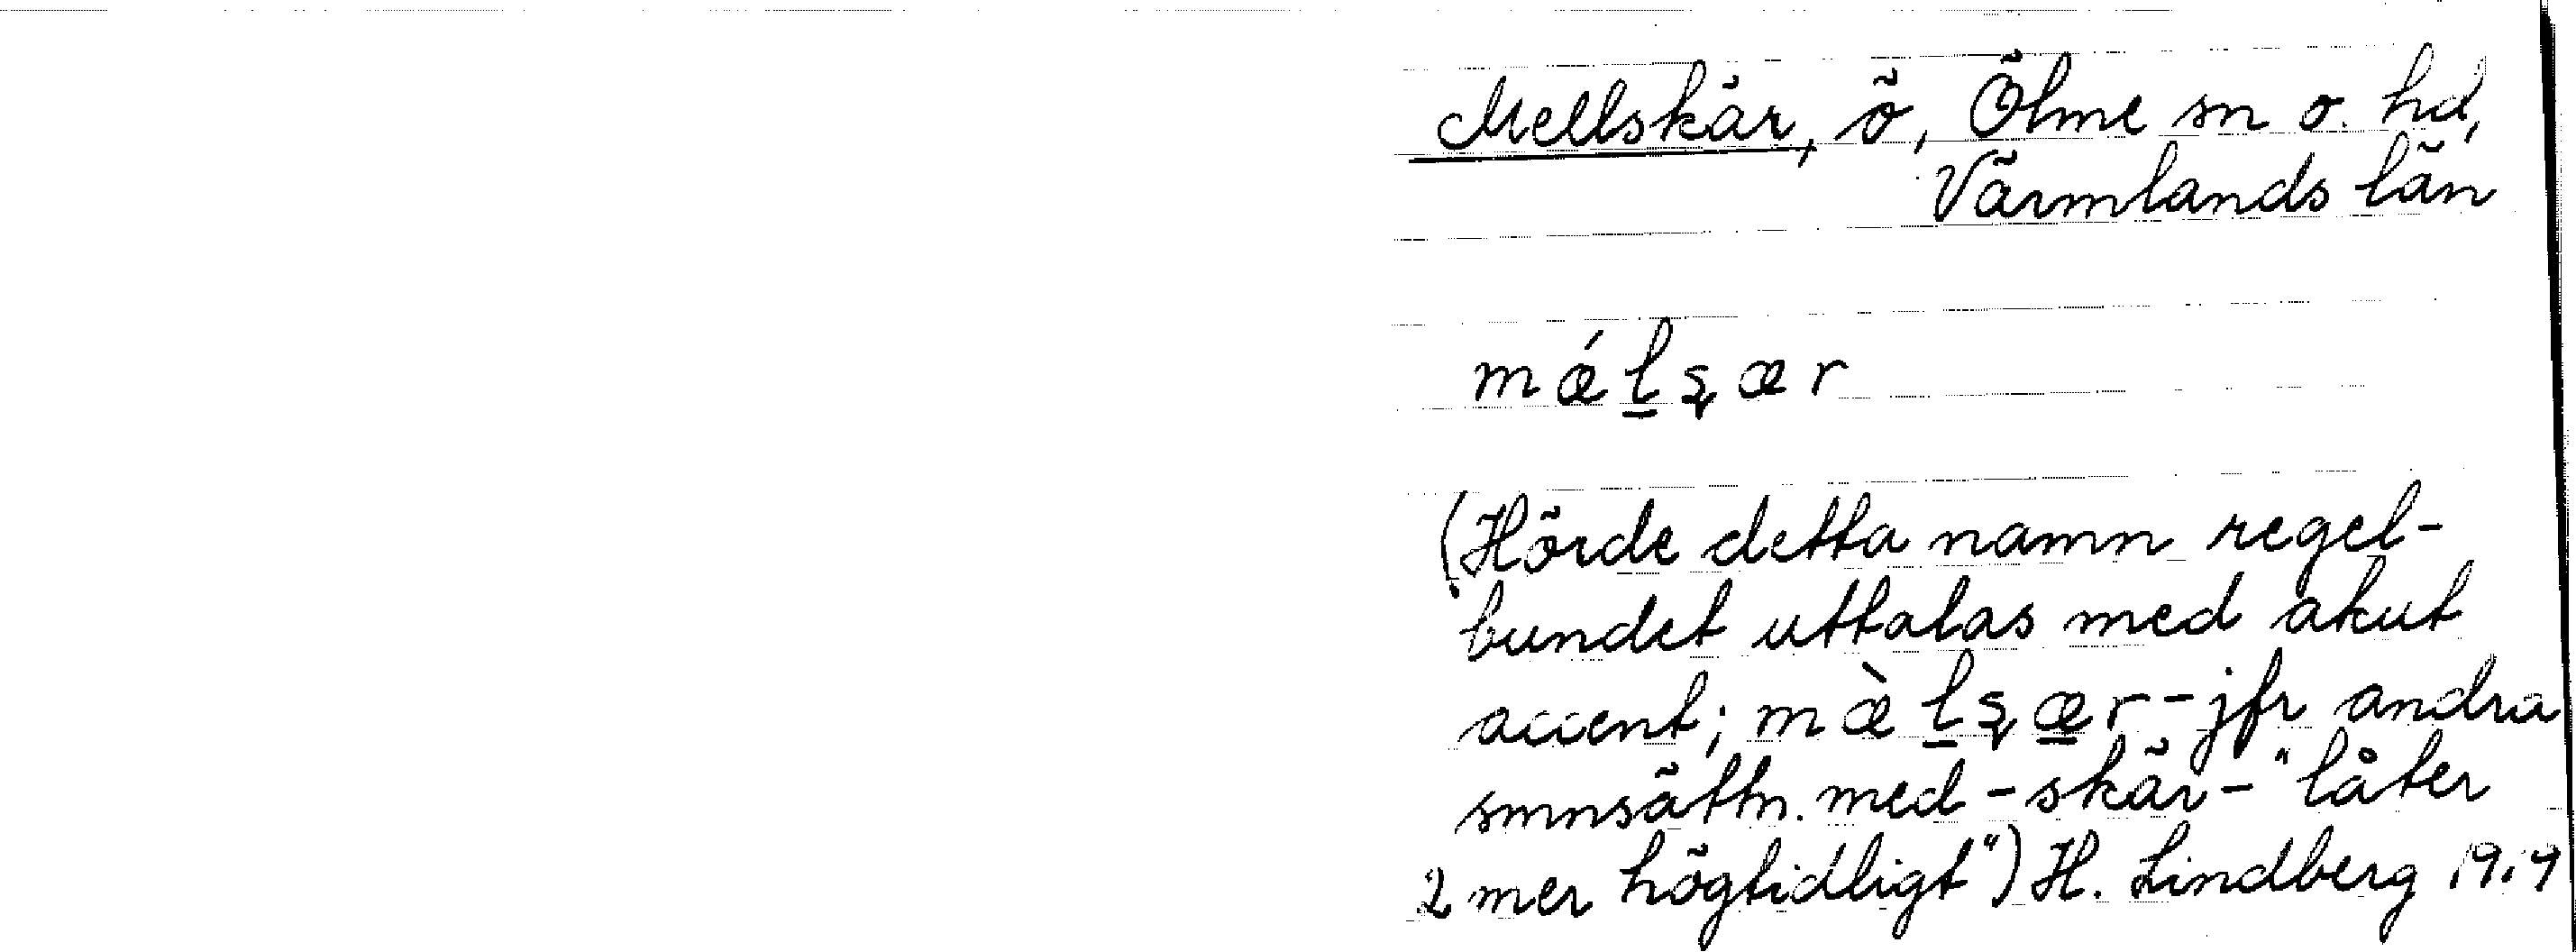 Mellskär, ö, Ölme sn o. hd,
Värmlands län
mǽl̠ʂær
(Hörde detta namn regel-
bundet uttalas med akut
accent; mæ̀l̠ʂæ̠r - jfr andra
smnsättn. med -skär- "låter
mer högtidligt") H. Lindberg 1919
2